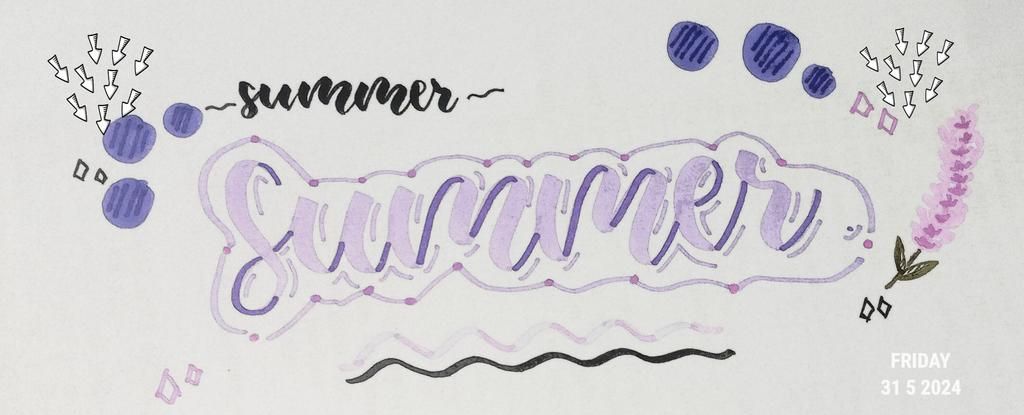 summer
Summer
FRIDAY
31 5 2024